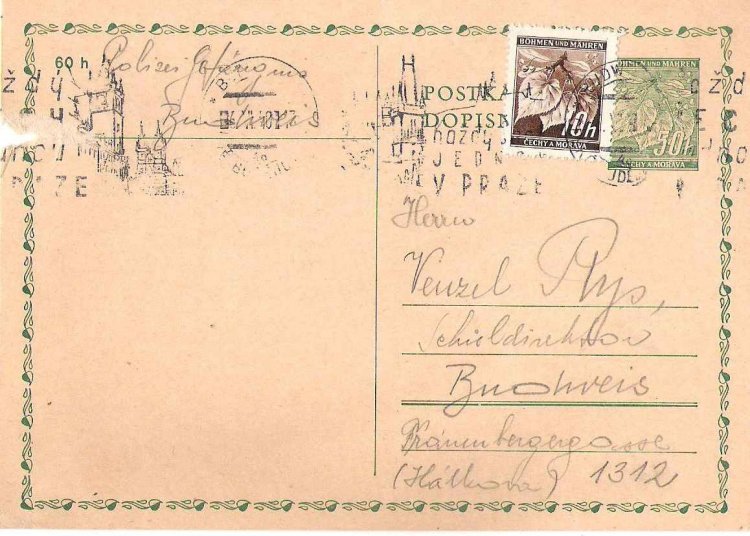 60 h
Polizei Gefängnis
Budweis
POSTKA
DOPISN
BÖHMEN UND MÄHREN
10h
ČECHY A MORAVA
BÖHMEN UND MÄHREN
50h
ČECHY A MORAVA
JEDN
V PRAZE
AZE
Herrn
Venzel Rys,
Schuldirektor
Budweis
(Hálkova) 1312